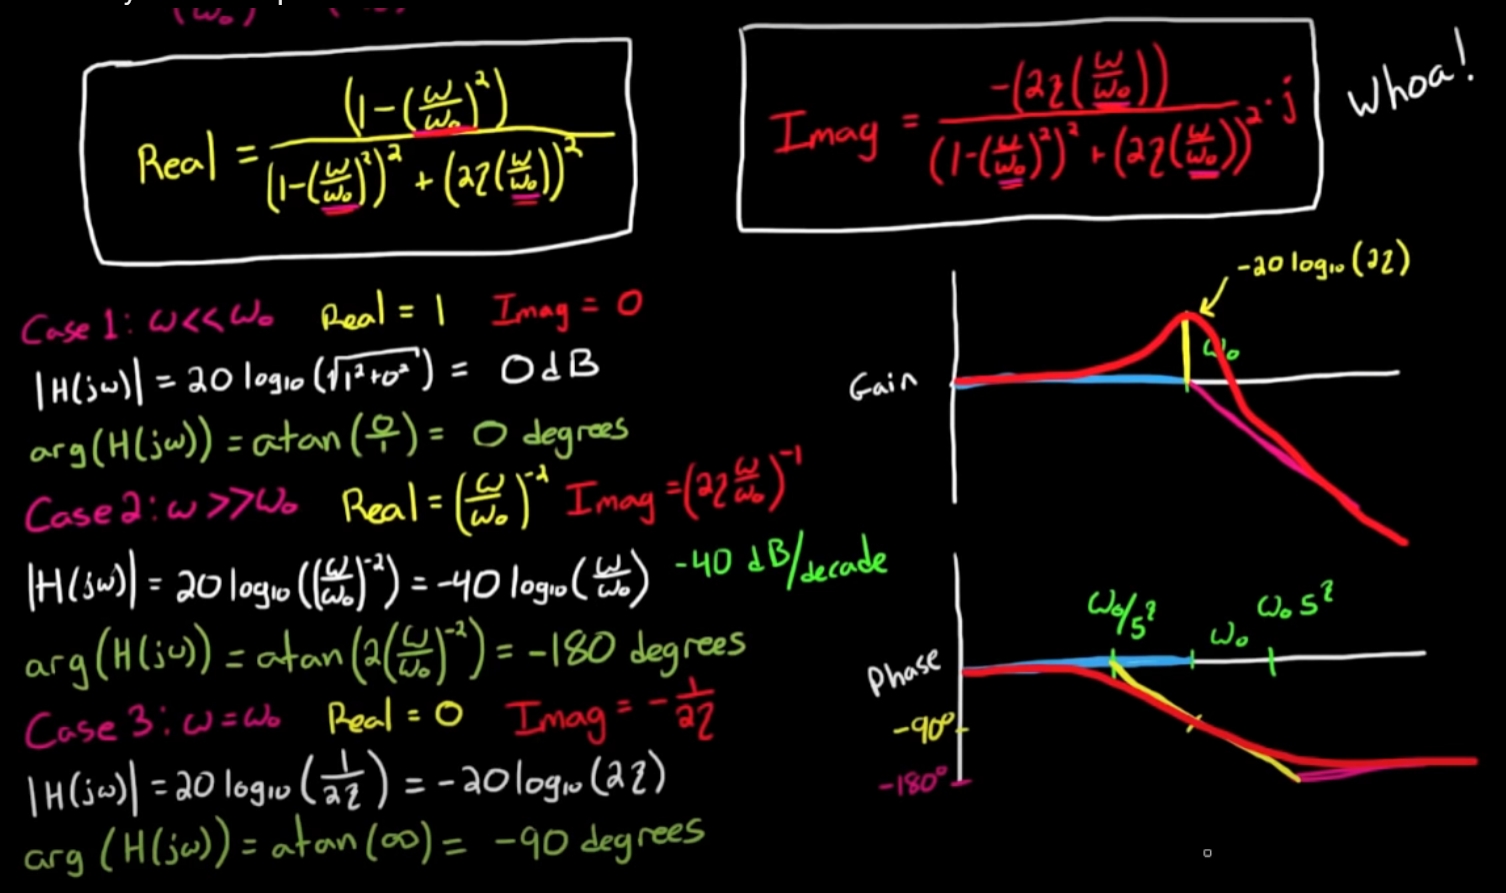 Real = (1-(ω/ω₀)²) / ((1-(ω/ω₀)²)² + (2ζ(ω/ω₀))²)
Imag = -(2ζ(ω/ω₀)) / ((1-(ω/ω₀)²)² + (2ζ(ω/ω₀))²) · j
Whoa!
Case 1: ω<<ω₀ Real = 1 Imag = 0
|H(jω)| = 20 log₁₀(√(1²+0²)) = 0 dB
arg(H(jω)) = atan(0/1) = 0 degrees
Case 2: ω>>ω₀ Real = (ω/ω₀)⁻² Imag = (2ζ ω/ω₀)⁻¹
|H(jω)| = 20 log₁₀((ω/ω₀)⁻²) = -40 log₁₀(ω/ω₀) -40 dB/decade
arg(H(jω)) = atan(2(ω/ω₀)⁻²) = -180 degrees
Case 3: ω=ω₀ Real = 0 Imag = -1/2ζ
|H(jω)| = 20 log₁₀(1/2ζ) = -20 log₁₀(2ζ)
arg(H(jω)) = atan(∞) = -90 degrees
-20 log₁₀(2ζ)
ω₀
Gain
ω₀/5^ζ ω₀ ω₀5^ζ
Phase
-90°
-180°